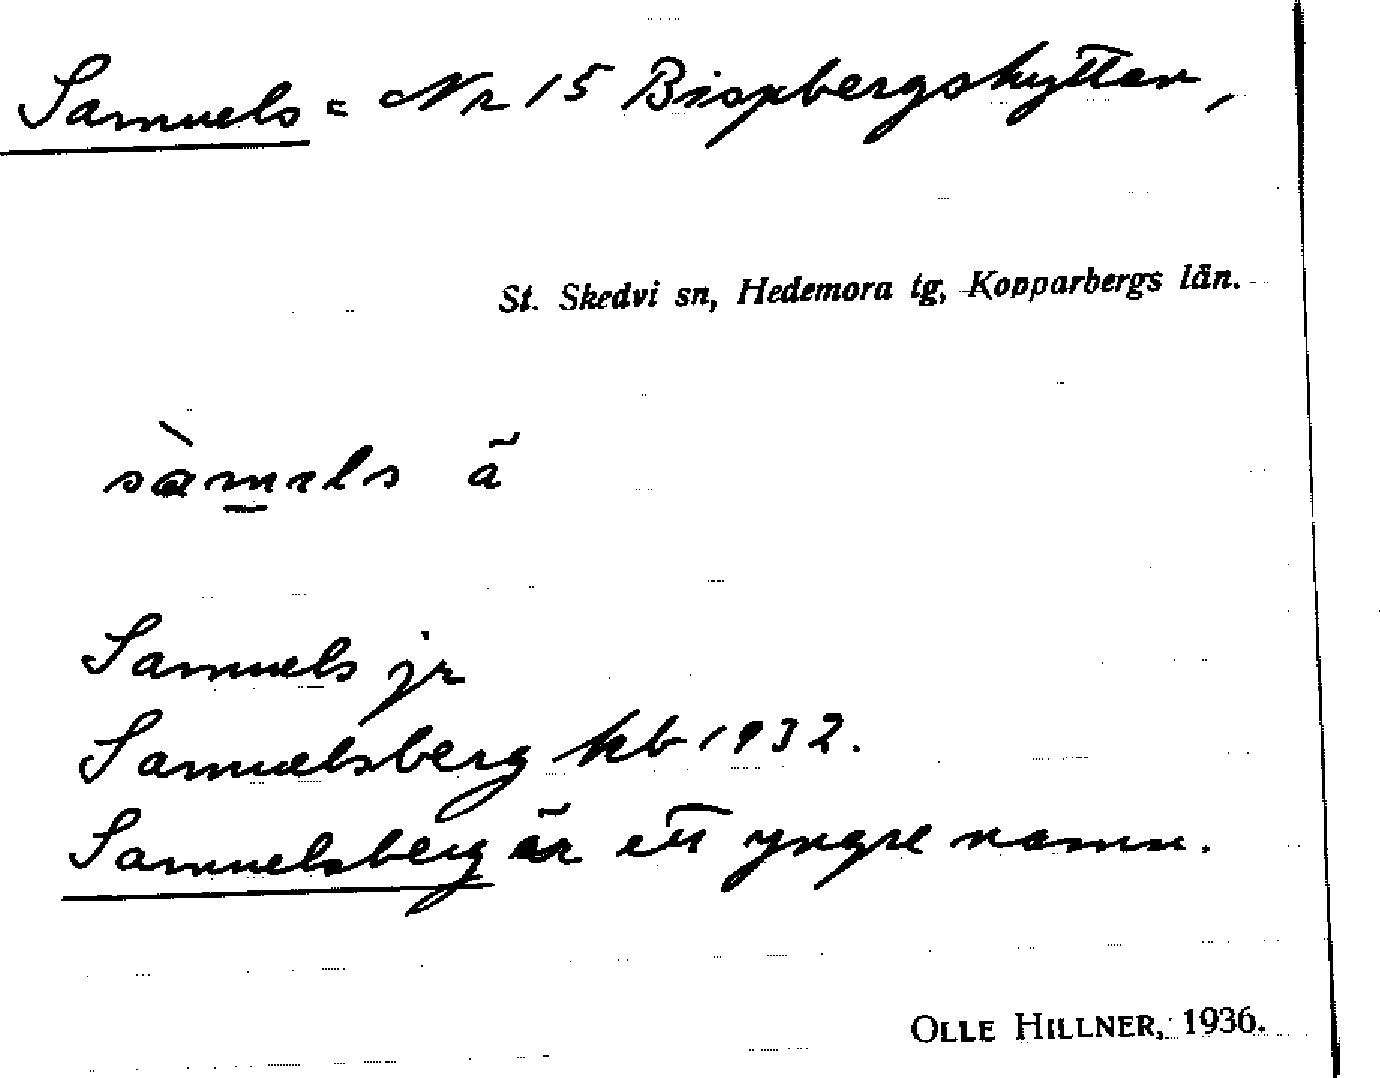 Samuels = Nr 15 Bispbergshyttan,
St. Skedvi sn, Hedemora tg, Kopparbergs län.
sàmels ã
Samuels jr
Samuelsberg kb 1932.
Samuelsberg är ett yngre namn.
OLLE HILLNER, 1936.